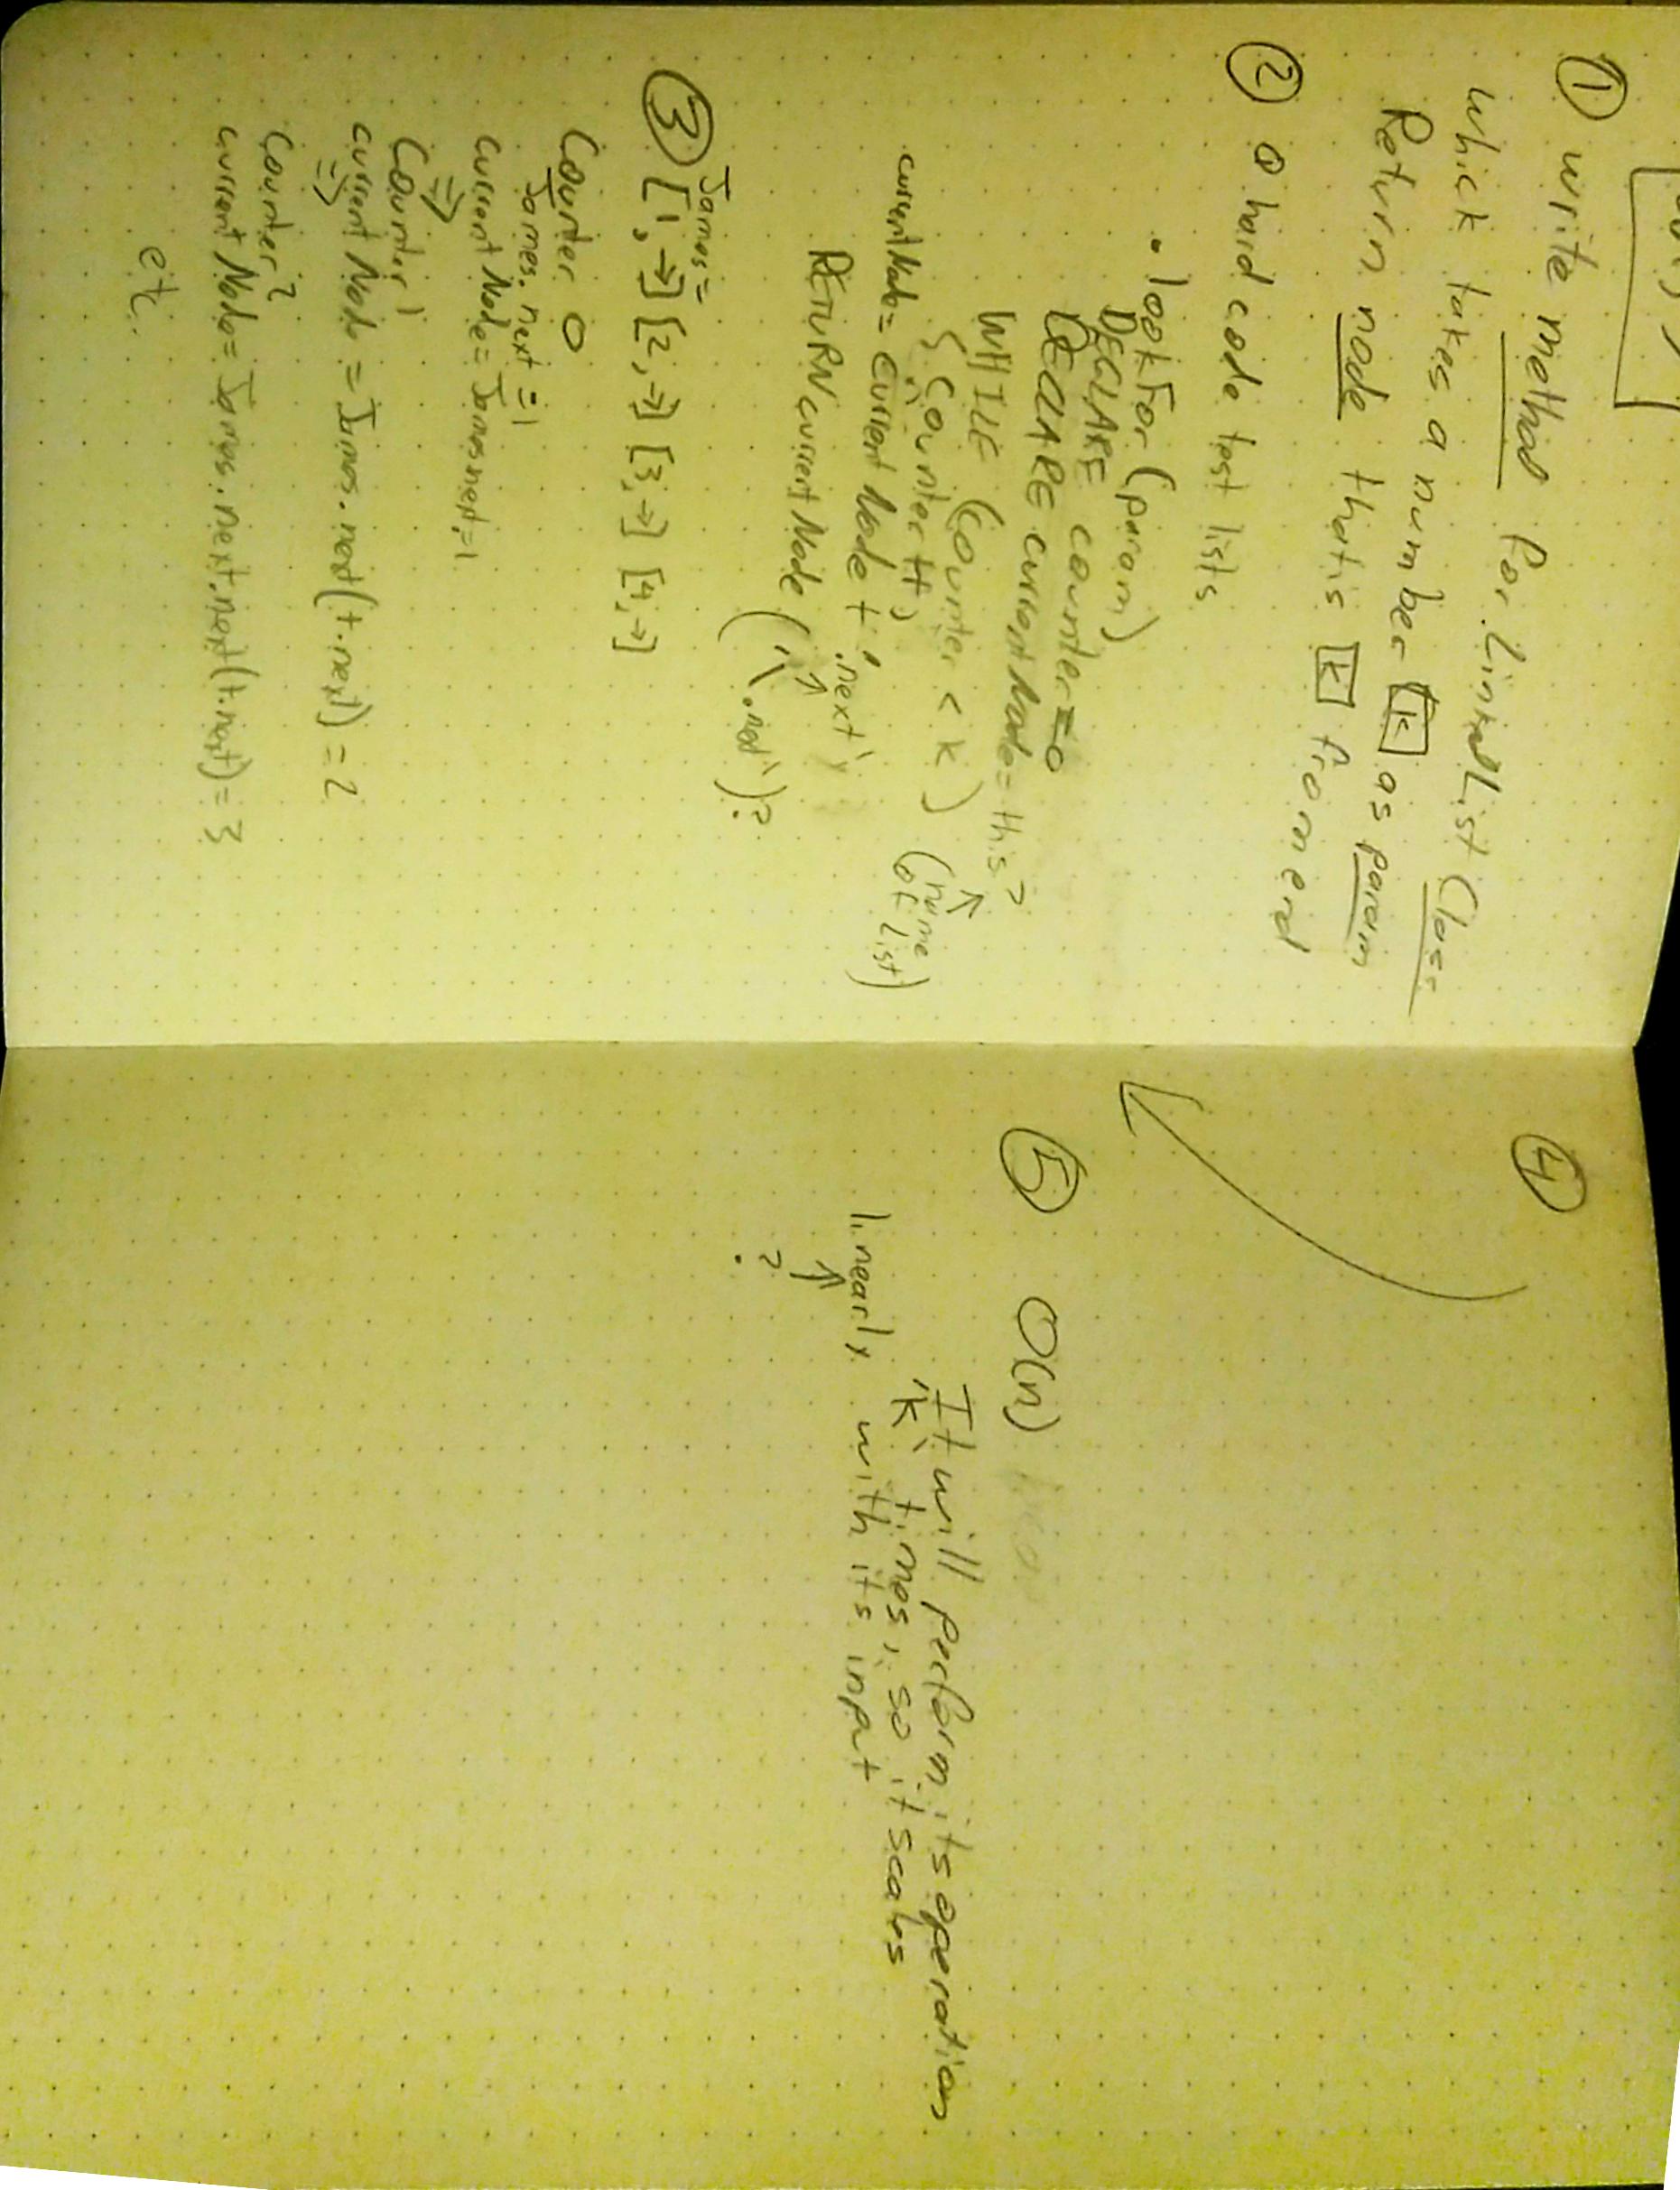 ① write method for Linked List Class
which takes a number k as param
Return node that is k from end
② o hard code test lists
• lookFor (param)
DECLARE counter = 0
DECLARE current Node = this?
(name of List)
WHILE (counter < k)
{ counter ++;
current Node = current Node + '.next'
RETURN current Node ('.next')?
③ James =
[1,→] [2,→] [3,→] [4,→]
Counter 0
James.next = 1
current Node = James.next = 1
=> Counter 1
current Node = James.next(+.next) = 2
=>
Counter 2
current Node = James.next.next(+.next) = 3
etc.
④
⑤ O(n)
It will perform its operation
'k' times, so it scales
linearly with its input
?